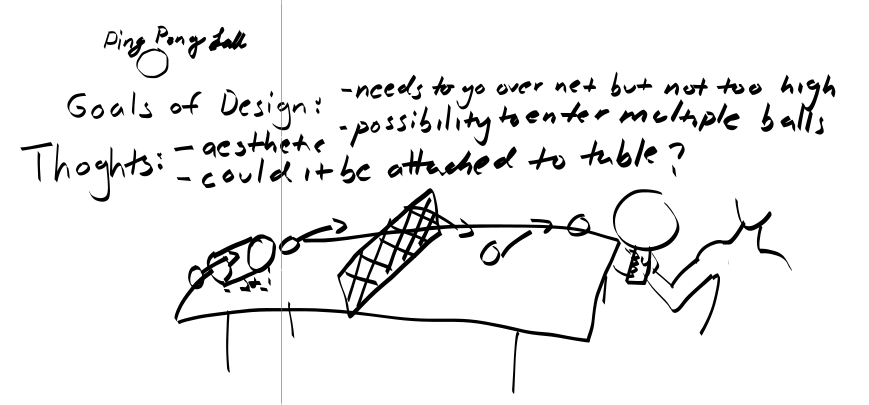 Ping Pong ball
Goals of Design: -needs to go over net but not too high
-possibility to enter multiple balls
Thoghts: - aesthetic
- could it be attached to table?